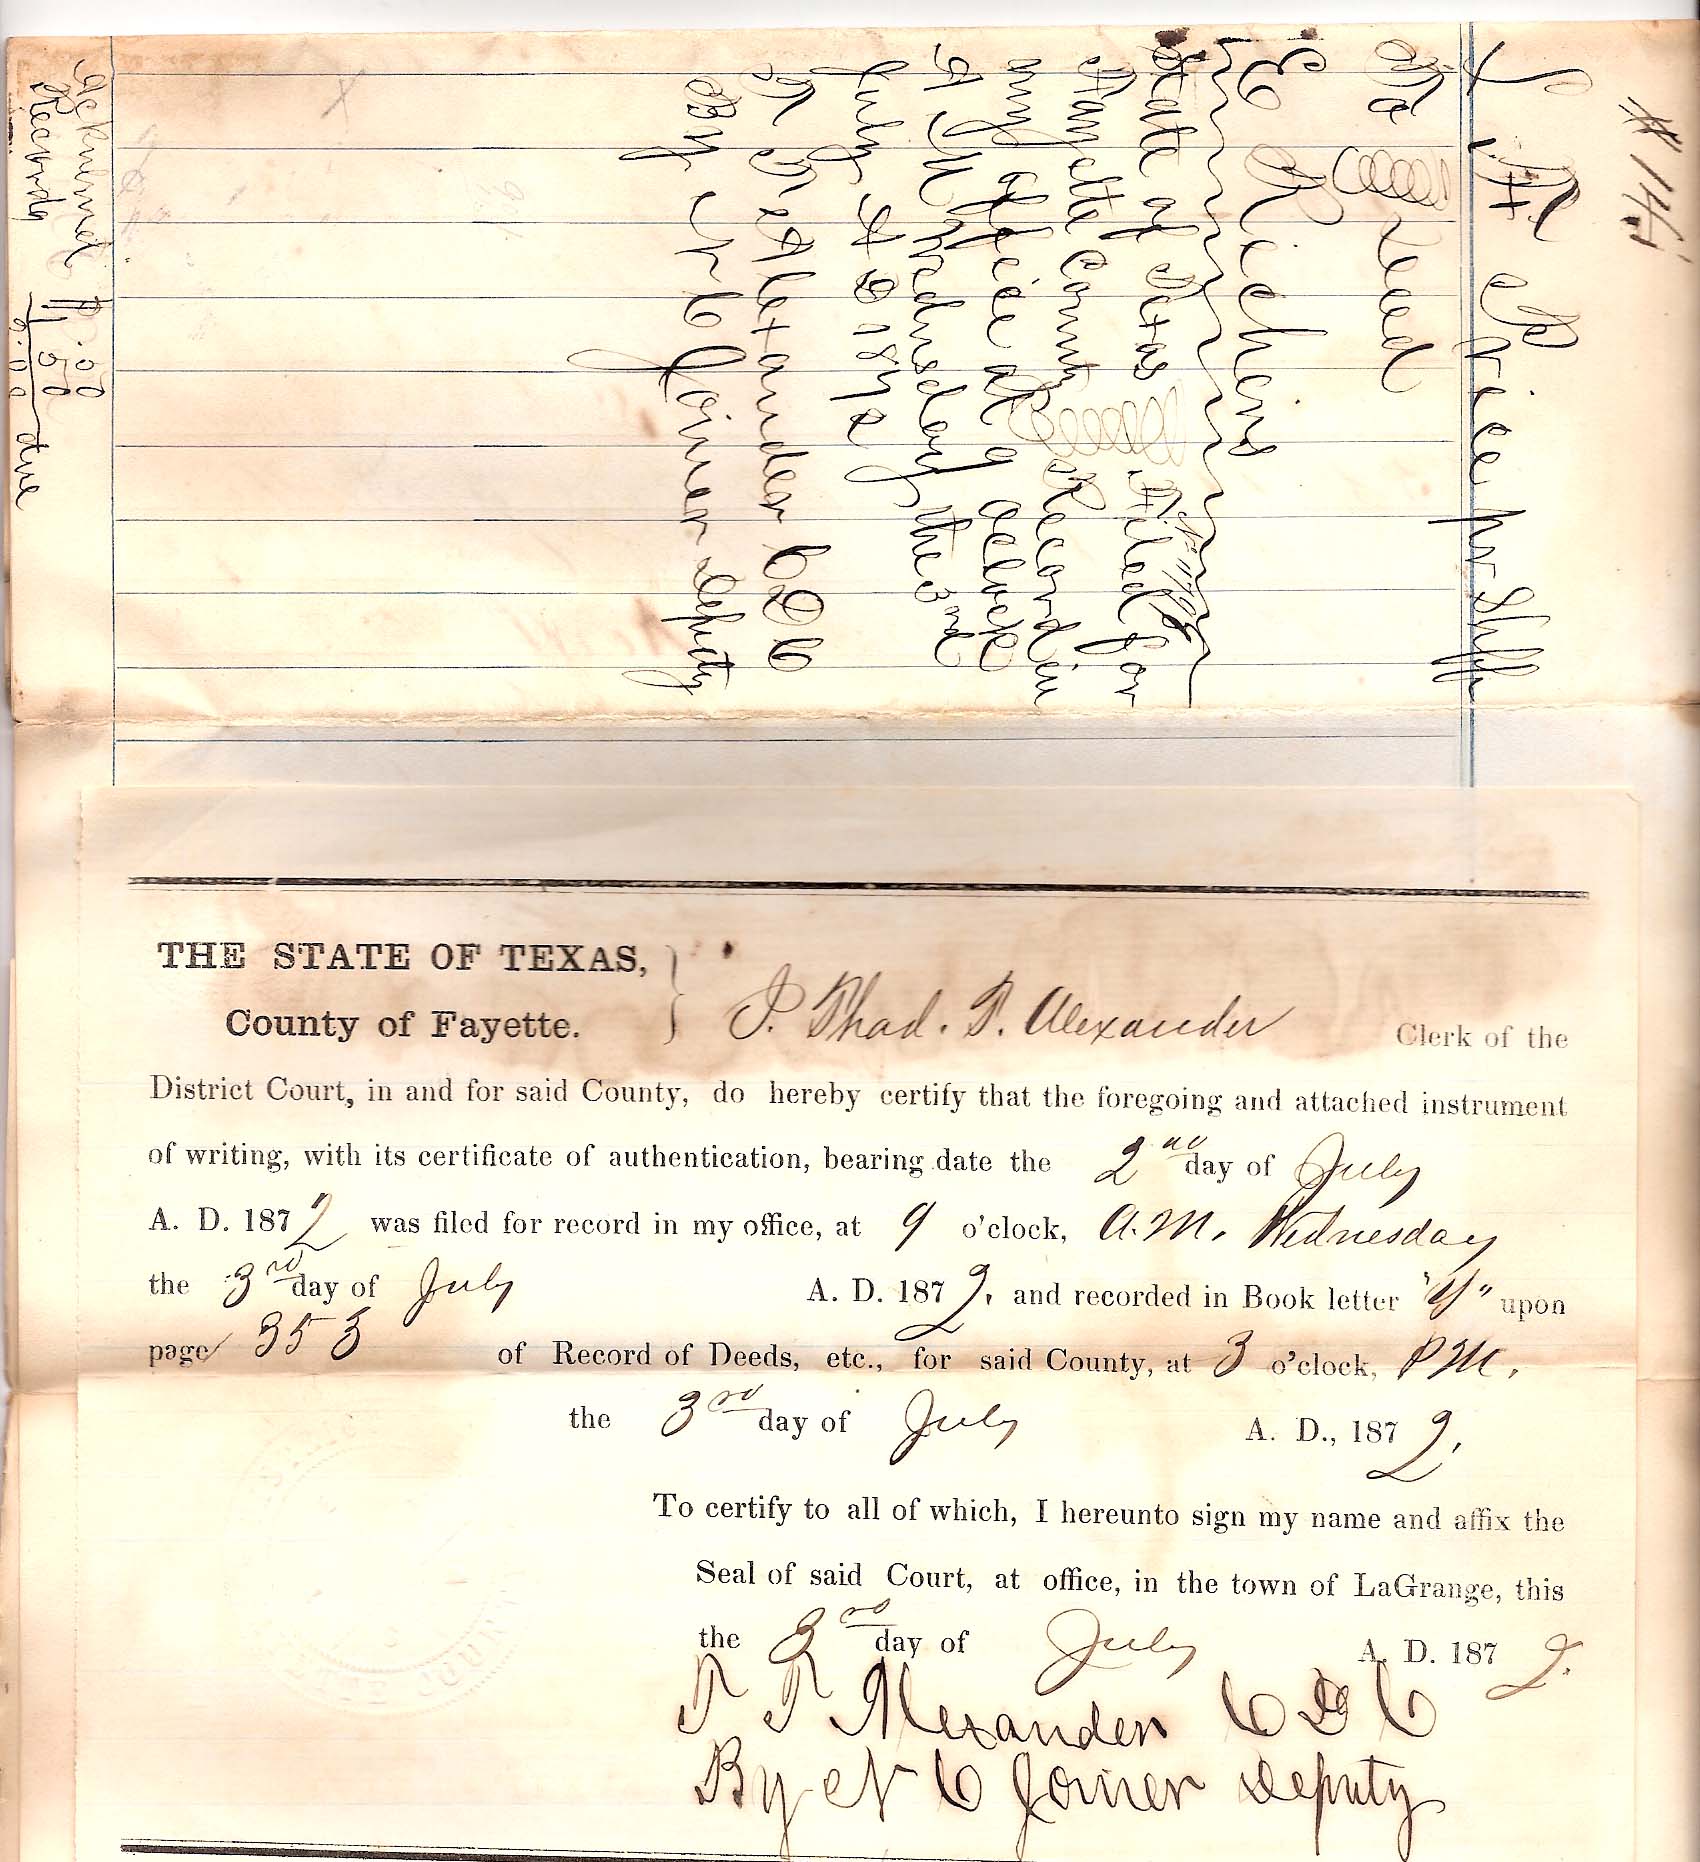 # 141
J. H. Price pr Shff
To Deed
E Richens
State of Texas
Fayette County
Filed for
Record in
my office at 9 oclock
A M Wednesday the 3rd
July A D 1872
T T Alexander C D C
By N C Joiner Deputy
Acknlmet
Records 1.50
2.00 due
THE STATE OF TEXAS,
County of Fayette.
I. Thad. T. Alexander Clerk of the
District Court, in and for said County, do hereby certify that the foregoing and attached instrument
of writing, with its certificate of authentication, bearing date the 2nd day of July
A. D. 1872 was filed for record in my office, at 9 o'clock, A.M. Wednesday
the 3rd day of July A. D. 1872, and recorded in Book letter "Y" upon
page 353 of Record of Deeds, etc., for said County, at 3 o'clock, P.M.
the 3rd day of July A. D., 1872.
To certify to all of which, I hereunto sign my name and affix the
Seal of said Court, at office, in the town of LaGrange, this
the 3rd day of July A. D. 1872.
T T Alexander C D C
By N C Joiner Deputy